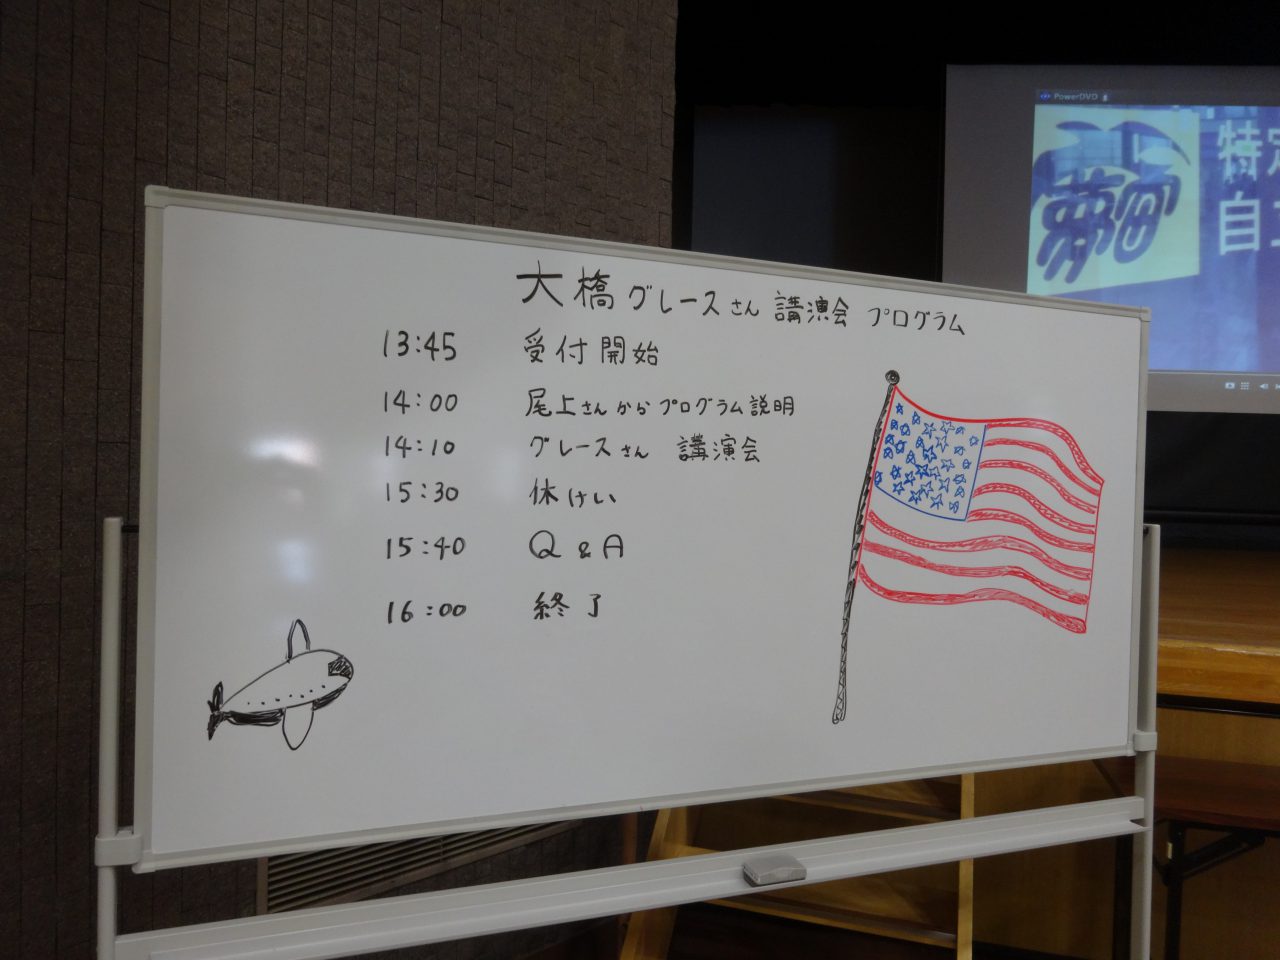 大橋グレースさん 講演会 プログラム
13:45 受付開始
14:00 尾上さんからプログラム説明
14:10 グレースさん 講演会
15:30 休けい
15:40 Q & A
16:00 終了
PowerDVD
夢
特定
自